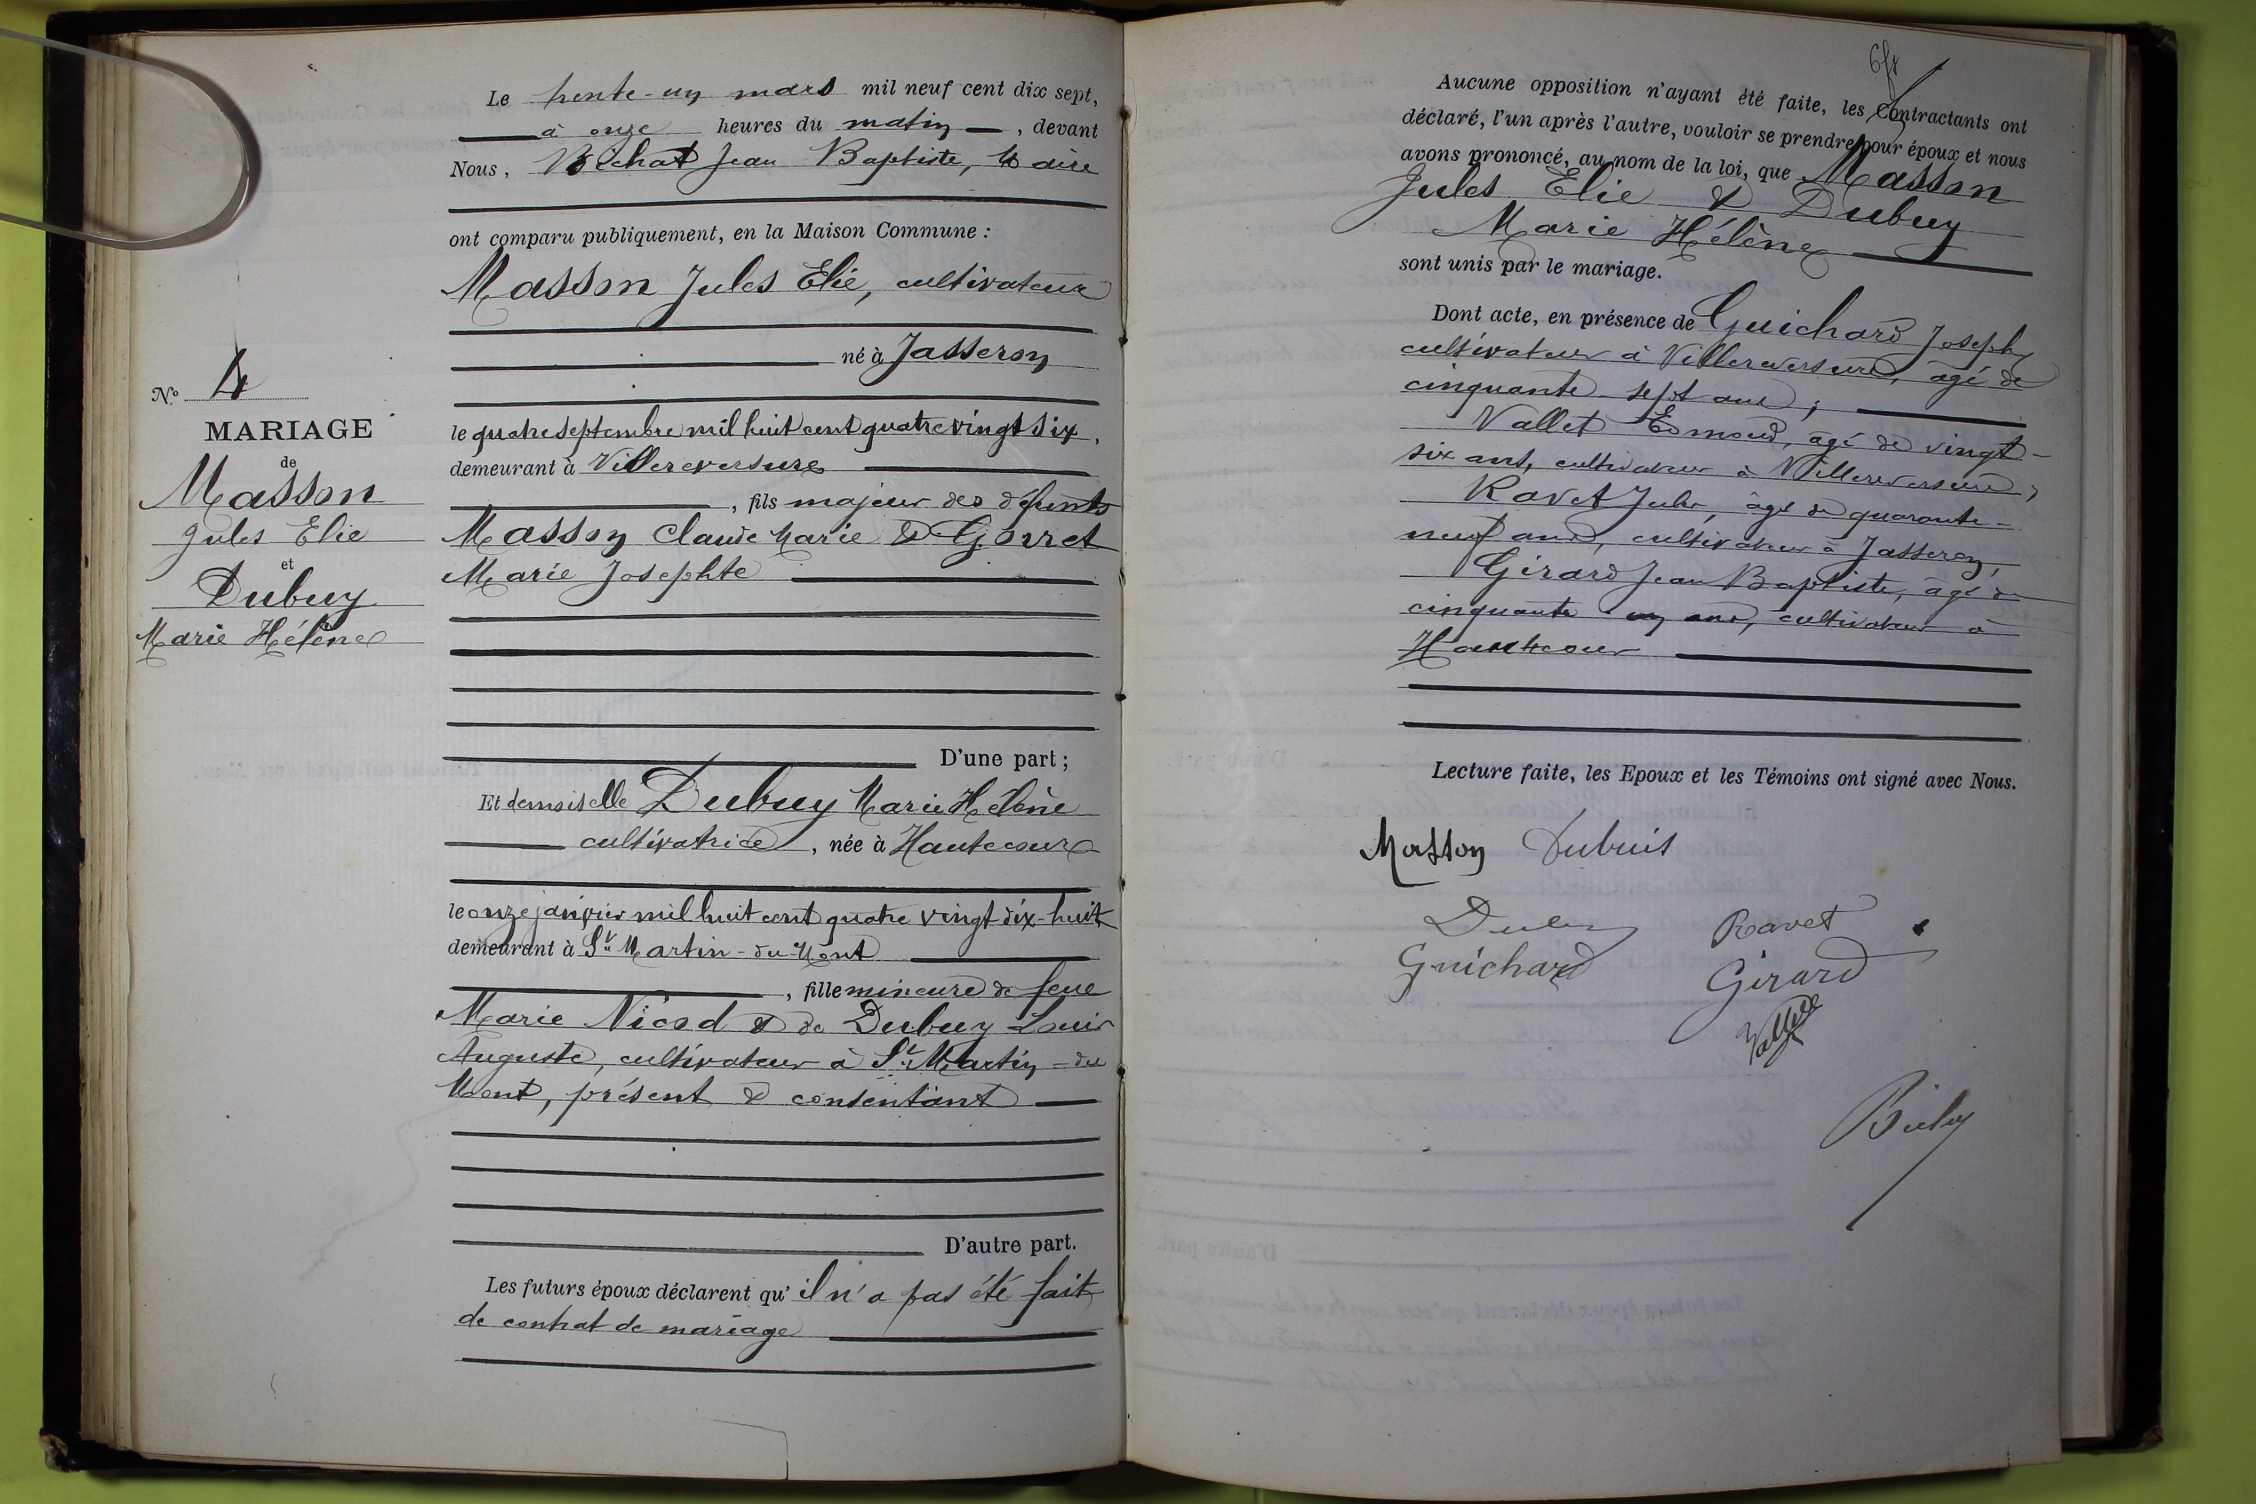 Le trente-un mars mil neuf cent dix sept,
à onze heures du matin, devant
Nous, Béchat Jean Baptiste, Maire
ont comparu publiquement, en la Maison Commune :
Masson Jules Elie, cultivateur
né à Jasseron
le quatre septembre mil huit cent quatre vingt six,
demeurant à Villereversure
, fils majeur des défunts
Masson Claude Marie & Gorret
Marie Josephte
D'une part ;
Et demoiselle Dubuy Marie Hélène
cultivatrice, née à Hautecour
le onze janvier mil huit cent quatre vingt dix-huit
demeurant à St Martin-du-Mont
, fille mineure de feue
Marie Nicod & de Dubuy Louis
Auguste, cultivateur à St Martin-du
Mont, présent & consentant
D'autre part.
Les futurs époux déclarent qu'il n'a pas été fait
de contrat de mariage
No 4
MARIAGE
de
Masson
Jules Elie
et
Dubuy
Marie Hélène
Aucune opposition n'ayant été faite, les Contractants ont
déclaré, l'un après l'autre, vouloir se prendre pour époux et nous
avons prononcé, au nom de la loi, que Masson
Jules Elie & Dubuy
Marie Hélène
sont unis par le mariage.
Dont acte, en présence de Guichard Joseph
cultivateur à Villereversure, âgé de
cinquante-sept ans ;
Vallet Edmond, âgé de vingt-
six ans, cultivateur à Villereversure ;
Ravet Jules, âgé de quarante-
neuf ans, cultivateur à Jasseron,
Girard Jean Baptiste, âgé de
cinquante-un ans, cultivateur à
Hautecour
Lecture faite, les Epoux et les Témoins ont signé avec Nous.
Masson Dubuis
Ravet
Guichard Girard